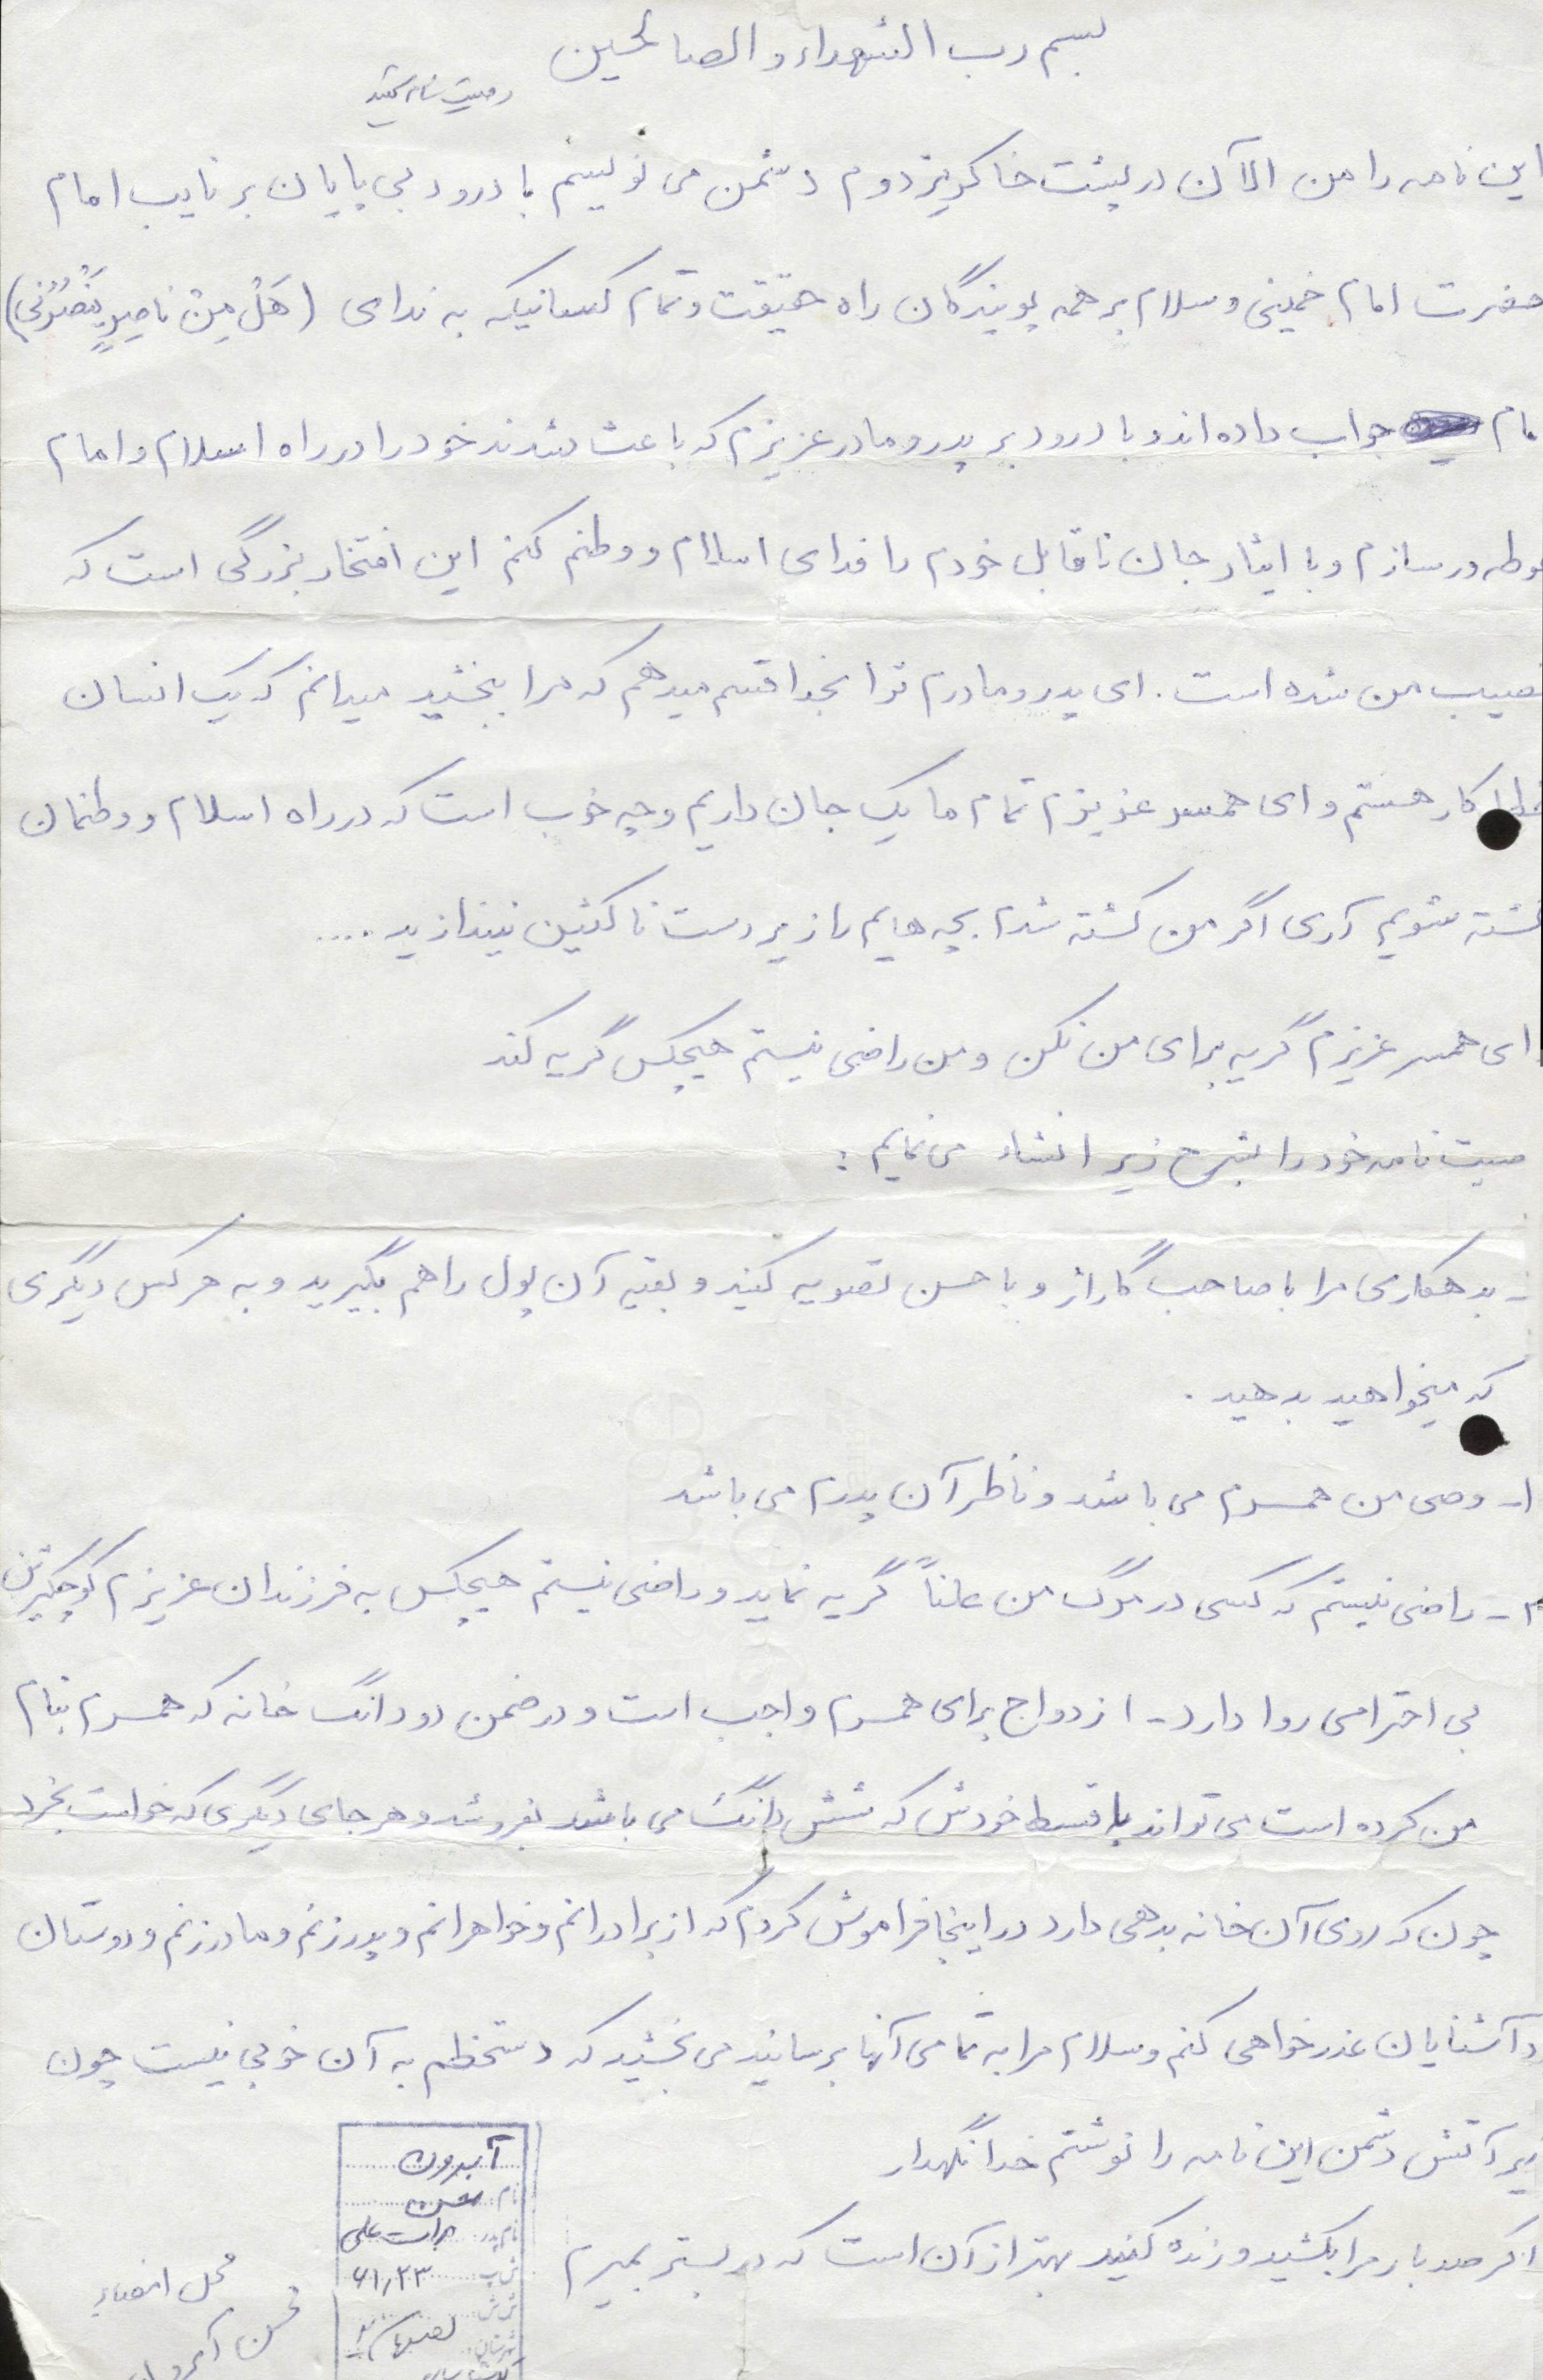 بسم رب الشهداء والصالحین
وصیت نامه شهید
این نامه را من الآن در پشت خاکریز دوم دشمن می نویسم با درود بی پایان بر نایب امام
حضرت امام خمینی و سلام بر همه پویندگان راه حقیقت و تمام کسانیکه به ندای (هَلْ مِنْ ناصِرٍ یَنْصُرُنی)
امام جواب داده اند و با درود بر پدر و مادر عزیزم که باعث شدند خود را در راه اسلام و امام
غوطه ور سازم و با ایثار جان ناقابل خودم را فدای اسلام و وطنم کنم این افتخار بزرگی است که
نصیب من شده است. ای پدر و مادرم ترا بخدا قسم میدهم که مرا ببخشید میدانم که یک انسان
خطا کار هستم و ای همسر عزیزم تمام ما یک جان داریم و چه خوب است که در راه اسلام و وطنمان
کشته شویم آری اگر من کشته شدم بچه هایم را زیر دست ناکثین نیندازید ....
ای همسر عزیزم گریه برای من نکن و من راضی نیستم هیچکس گریه کند
وصیت نامه خود را بشرح زیر انشاء می نمایم :
- بدهکاری مرا با صاحب گاراژ و با حسن تصویه کنید و بقیه آن پول را هم بگیرید و به هر کس دیگری
که میخواهید بدهید .
۱- وصی من همسرم می باشد و ناظر آن پدرم می باشد
۲- راضی نیستم که کسی در مرگ من علناً گریه نماید و راضی نیستم هیچکس به فرزندان عزیزم کوچکترین
بی احترامی روا دارد - ازدواج برای همسرم واجب است و در ضمن دو دانگ خانه که همسرم بنام
من کرده است می تواند با قسط خودش که شش دانگ می باشد بفروشد و هر جای دیگری که خواست بخرد
چون که روی آن خانه بدهی دارد در اینجا فراموش کردم که از برادرانم و خواهرانم و پدرزنم و مادرزنم و دوستان
و آشنایان عذرخواهی کنم و سلام مرا به تمامی آنها برسانید می بخشید که دستخطم به آن خوبی نیست چون
زیر آتش دشمن این نامه را نوشتم خدا نگهدار
اگر صد بار مرا بکشید و زنده کنید بهتر از آن است که در بستر بمیرم
آبرون
نام
محسن
نام پدر براتعلی
ش پ ۶۱/۲۳
ش ش
شهرستان
محل امضاء
محسن